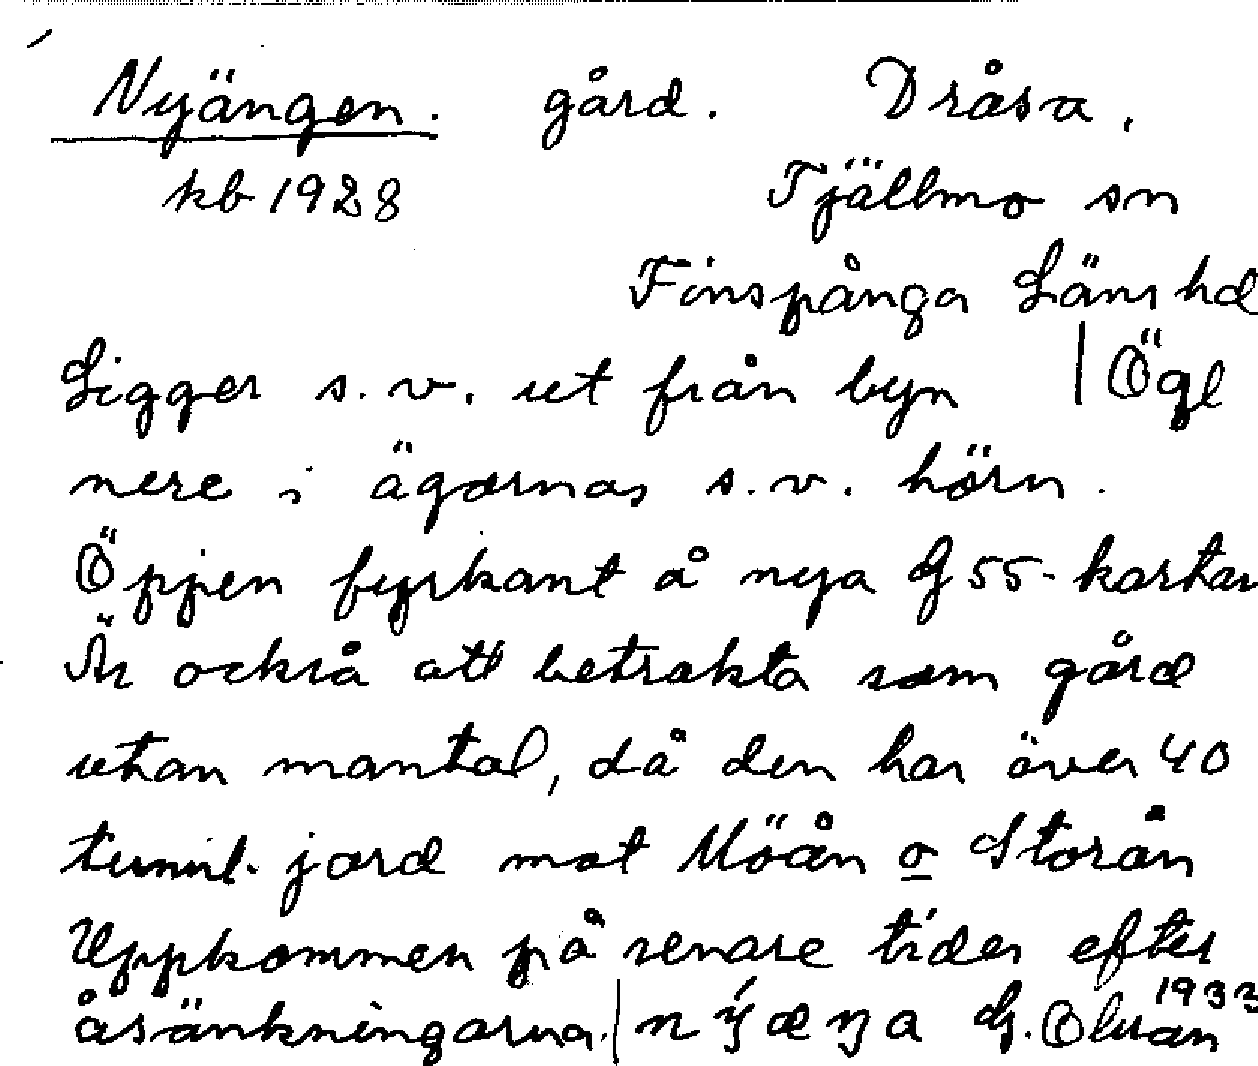 Nyängen. gård. Dråsa.
kb 1928 Tjällmo sn
Finspånga Läns hd
Ligger s.v. ut från byn | Ögl
nere i ägornas s.v. hörn.
Öppen fyrkant å nya G 55-kartan
Är också att betrakta som gård
utan mantal, då den har över 40
tunnl. jord mot Möån o Storån
Uppkommen på senare tider efter
åsänkningarna. | nýæŋa G. Olsson 1933